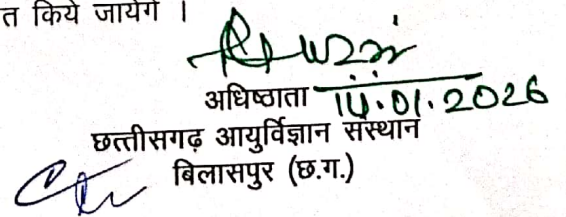 त किये जायेंगे ।
अधिष्ठाता 14.01.2026
छत्तीसगढ़ आयुर्विज्ञान संस्थान
बिलासपुर (छ.ग.)